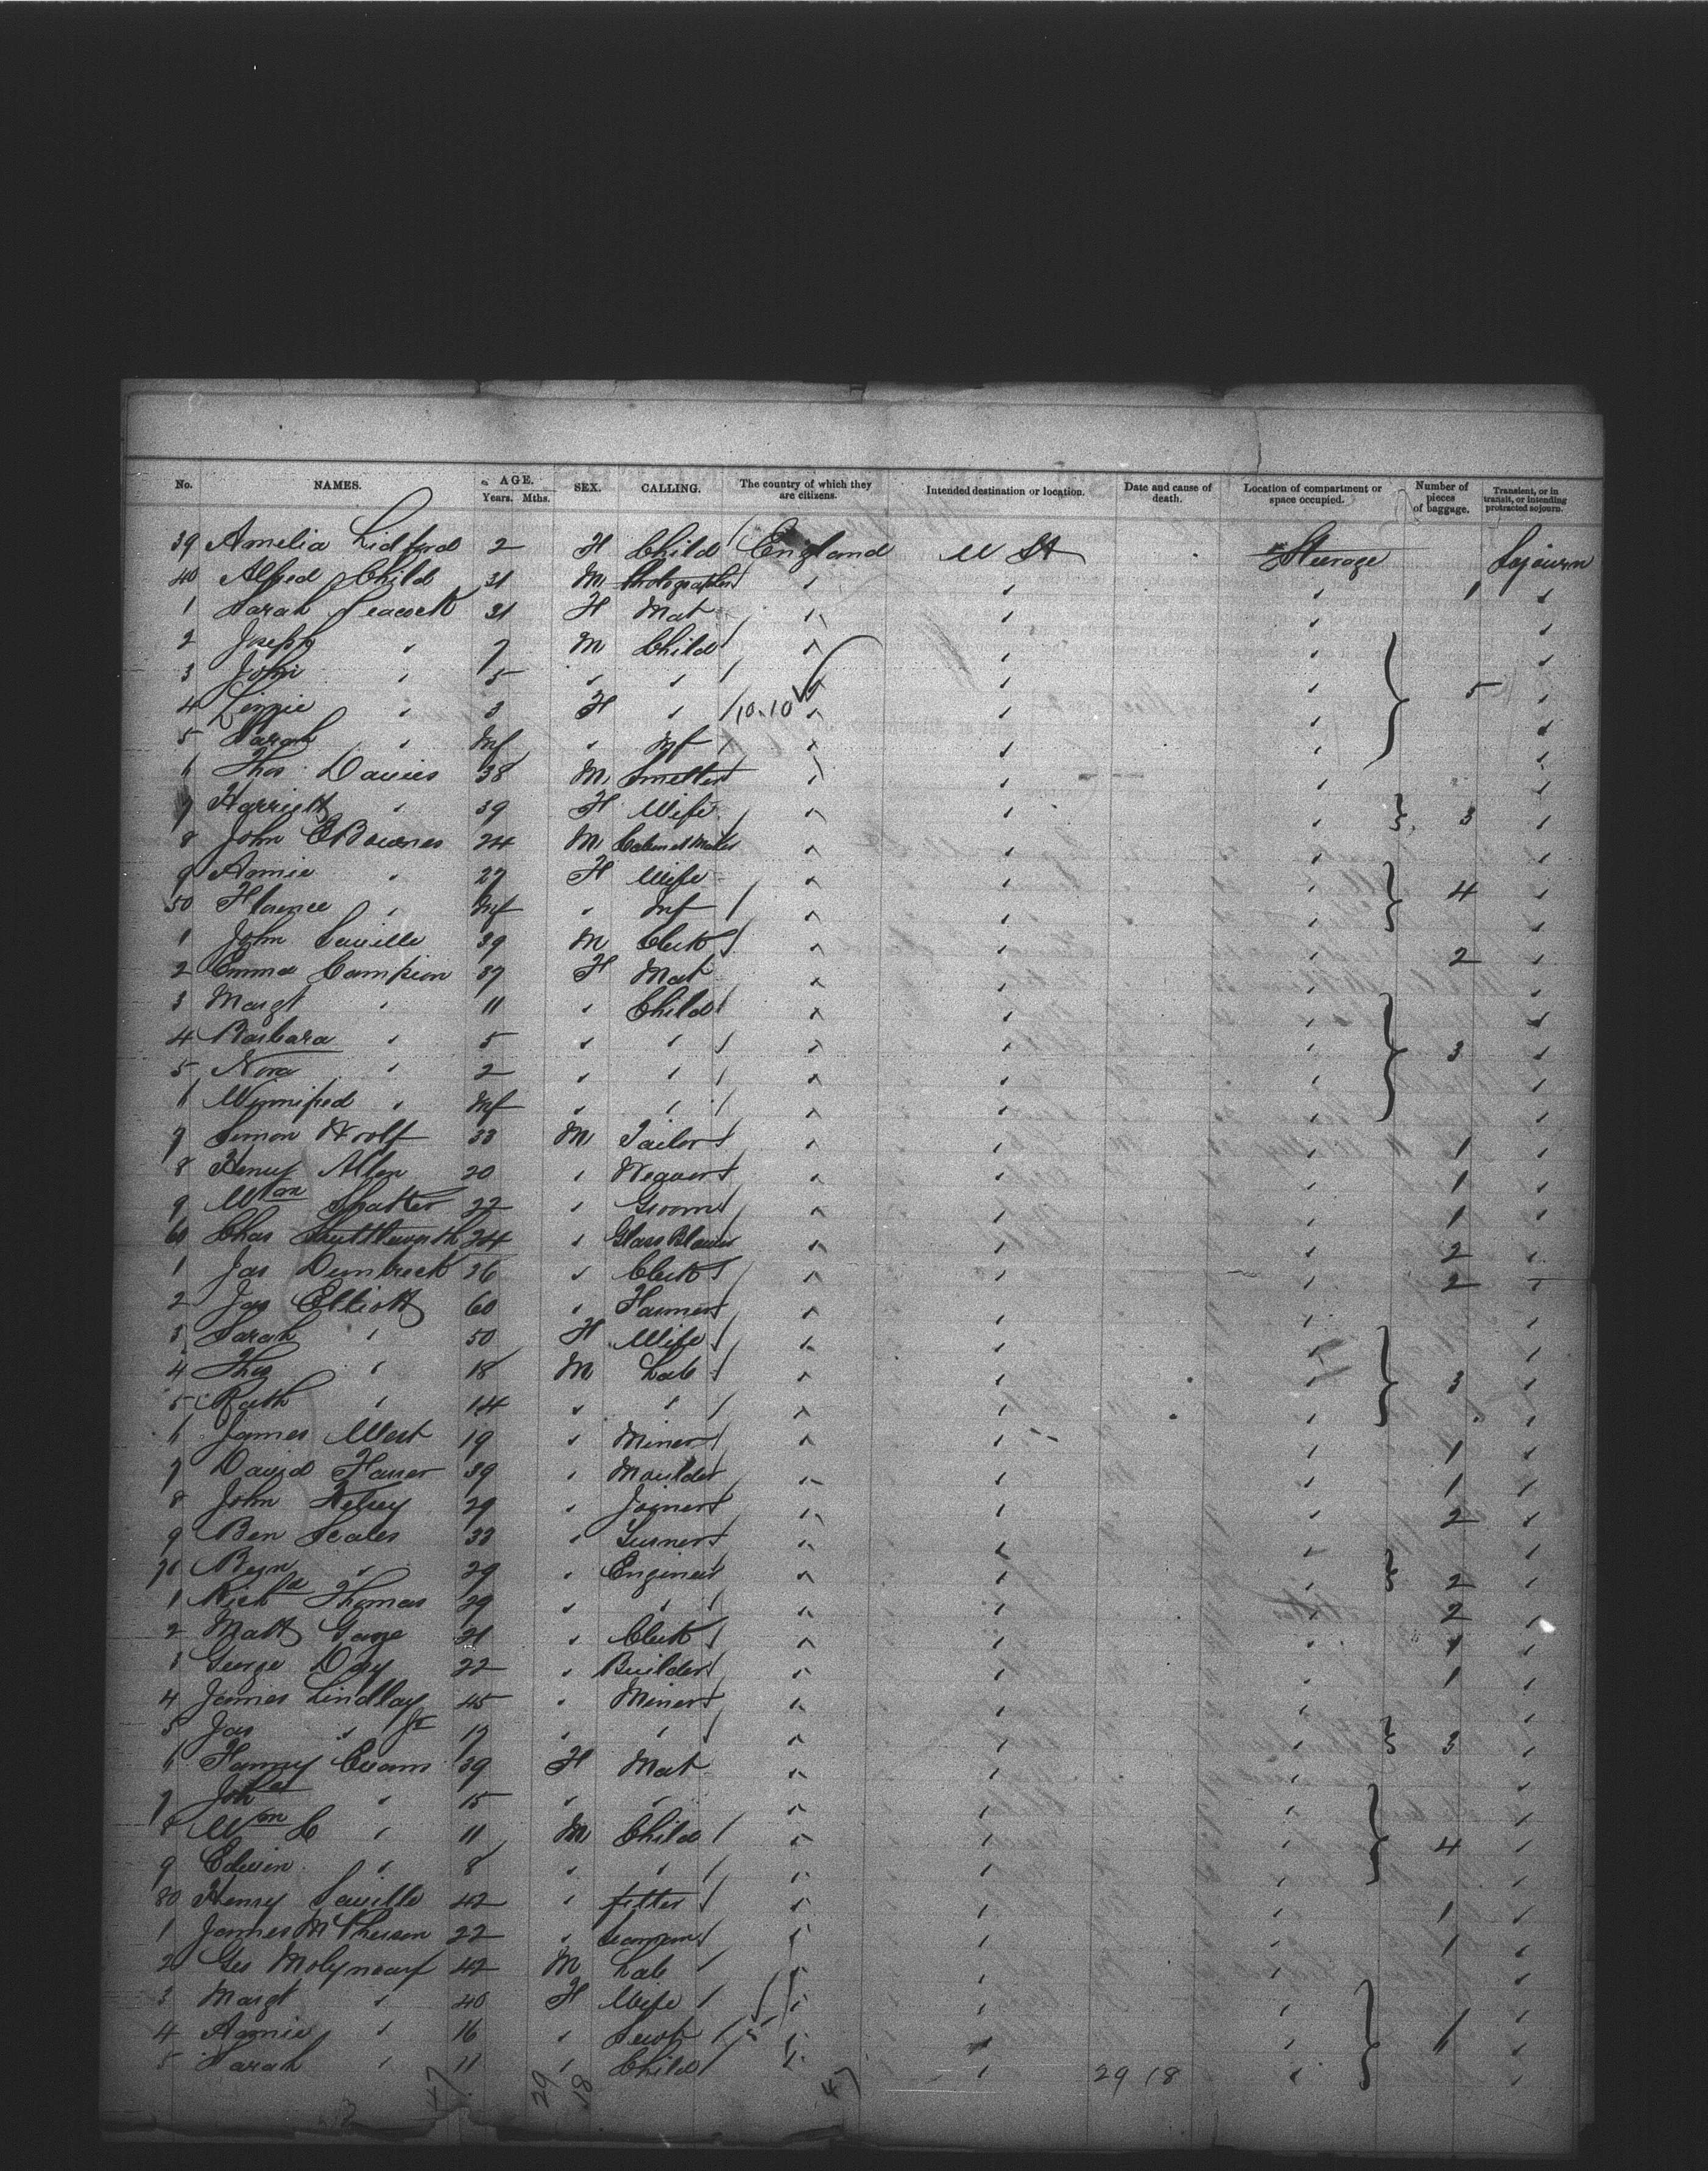 No. NAMES. AGE. Years. Mths. SEX. CALLING. The country of which they are citizens. Intended destination or location. Date and cause of death. Location of compartment or space occupied. Number of pieces of baggage. Transient, or in transit, or intending protracted sojourn.
39 Amelia Lidford 2 F Child England U St Steerage Sojourn
40 Alfred Child 31 M Photographer 1
1 Sarah Peacock 31 F Mat
2 Joseph " 7 M Child
3 John " 5 " "
4 Lizzie " 3 F " 10.10 5
5 Sarah " Inf " Inf
6 Thos Davies 38 M Smelter
7 Harriett " 39 F Wife 3
8 John E Bownes 24 M Cabinet Maker
9 Annie " 27 F Wife 4
50 Florence " Inf " Inf
1 John Saville 39 M Clerk 2
2 Emma Campion 37 F Mat
3 Margt " 11 " Child
4 Barbara " 5 " " 3
5 Nora " 2 " "
6 Winnifred " Inf " "
7 Simon Woolf 33 M Tailor 1
8 Henry Allen 20 " Weaver 1
9 Wm 22 " Groom 1
60 Chas Shuttleworth 24 " Glass Blower 2
1 Jas Dumbreck 36 " Clerk 2
2 Jas Elliott 60 " Farmer
3 Sarah " 50 F Wife
4 Thos " 18 M Lab 3
5 " 14 " "
6 James West 19 " Miner 1
7 David 39 " Moulder 1
8 John Kelsey 29 " Joiner 2
9 Ben Scales 33 " Turner
70 Benj " 29 " Engineer 2
1 Richd Thomas 29 " " 2
2 Matt 21 " Clerk 1
3 George Day 22 " Builder 1
4 James Lindlay 45 " Miner
5 Jas " Jr 17 " " 3
6 Fanny Evans 39 F Mat
7 " 15 " "
8 Wm C " 11 M Child 4
9 Edwin " 8 " "
80 Henry Saville 42 " fitter 1
1 James 22 " Seaman 1
2 Geo Molyneaux 42 M Lab
3 Margt " 40 F Wife
4 Annie " 16 " Servt 6
5 Sarah " 11 " Child 29 18
47 29 18 47